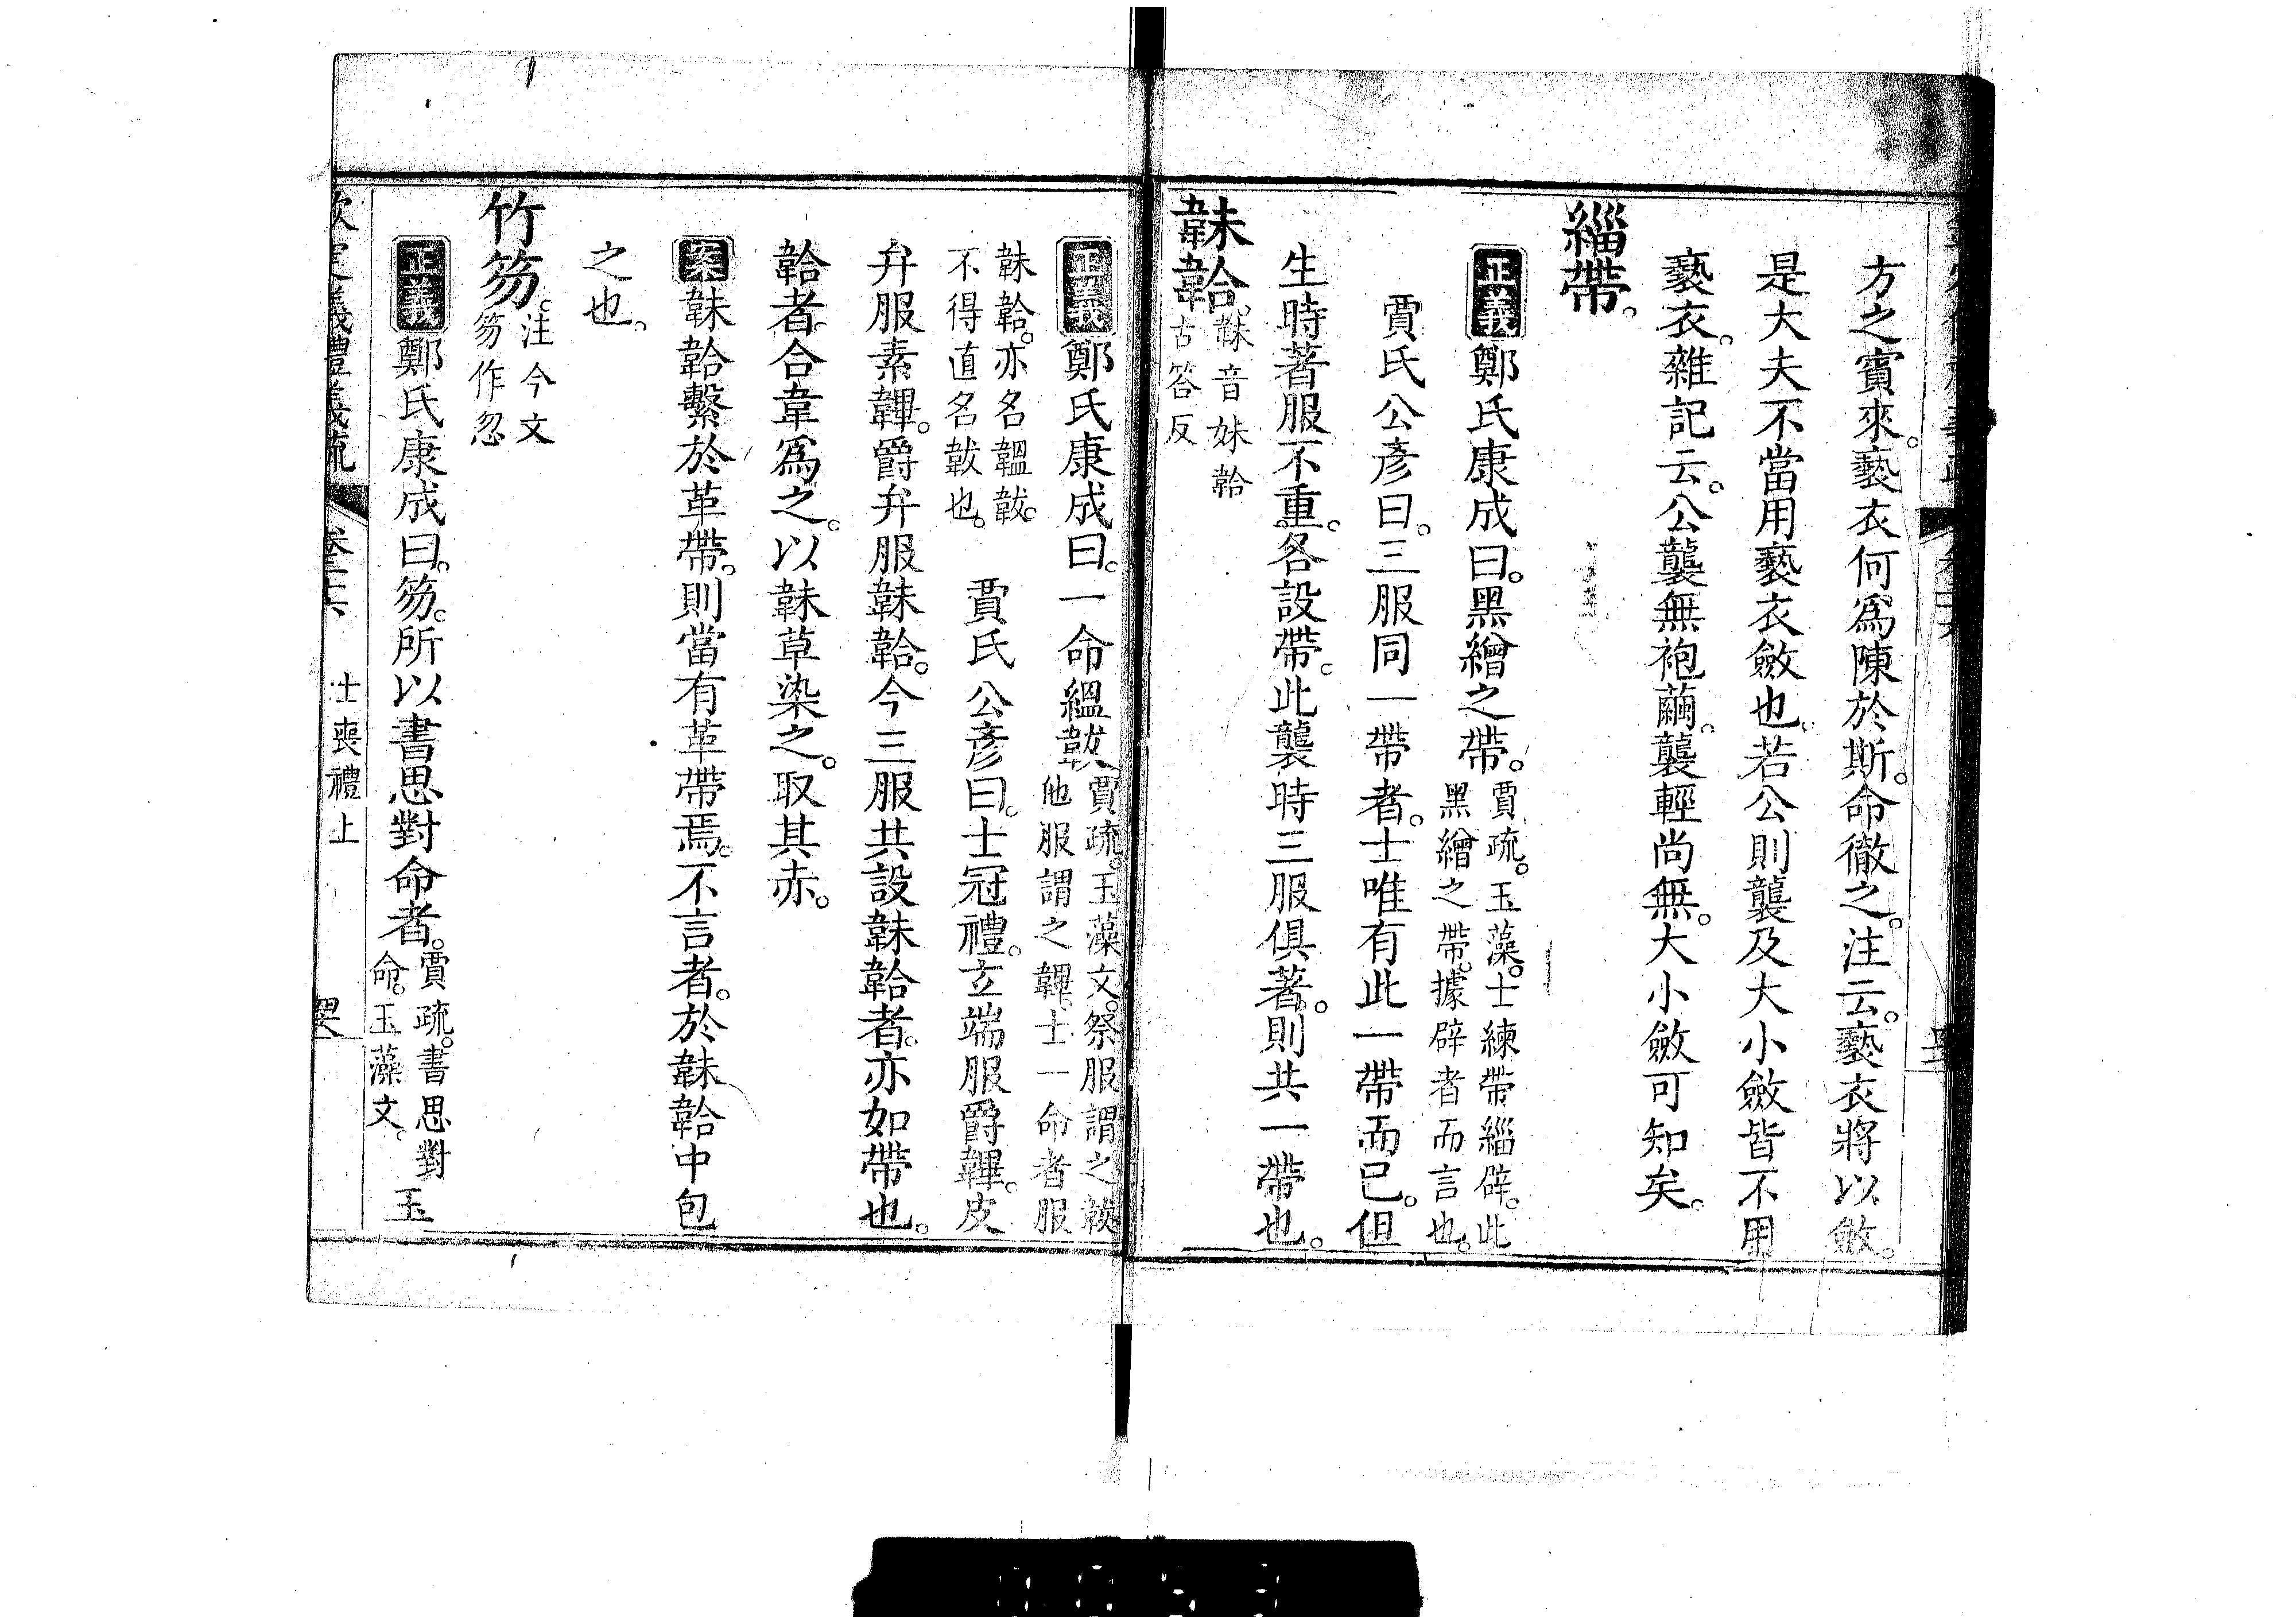 方之賓來。褻衣何爲陳於斯。命徹之。注云。褻衣將以斂。
是大夫不當用褻衣斂也。若公則襲及大小斂皆不用
褻衣。雜記云。公襲無袍繭。襲輕尚無。大小斂可知矣。
緇帶。
正義鄭氏康成曰。黑繒之帶。賈疏。玉藻。士練帶緇辟。此
黑繒之帶。據辟者而言也。
賈氏公彥曰。三服同一帶者。士唯有此一帶而已。但
生時著服不重。各設帶。此襲時三服俱著。則共一帶也。
韎韐。韎音妹韐
古答反
正義鄭氏康成曰。一命縕韍。賈疏。玉藻文。祭服謂之韍。
他服謂之韠。士一命者服
韎韐。亦名韞韍。
不得直名韍也。
賈氏公彥曰。士冠禮。玄端服爵韠。皮
弁服素韠。爵弁服韎韐。今三服共設韎韐者。亦如帶也。
韐者。合韋爲之。以韎草染之。取其赤。
案韎韐繫於革帶。則當有革帶焉。不言者。於韎韐中包
之也。
竹笏。注今文
笏作忽
正義鄭氏康成曰。笏。所以書思對命者。賈疏。書思對
命。玉藻文。
玉
欽定義禮義疏 卷二十六 士喪禮上